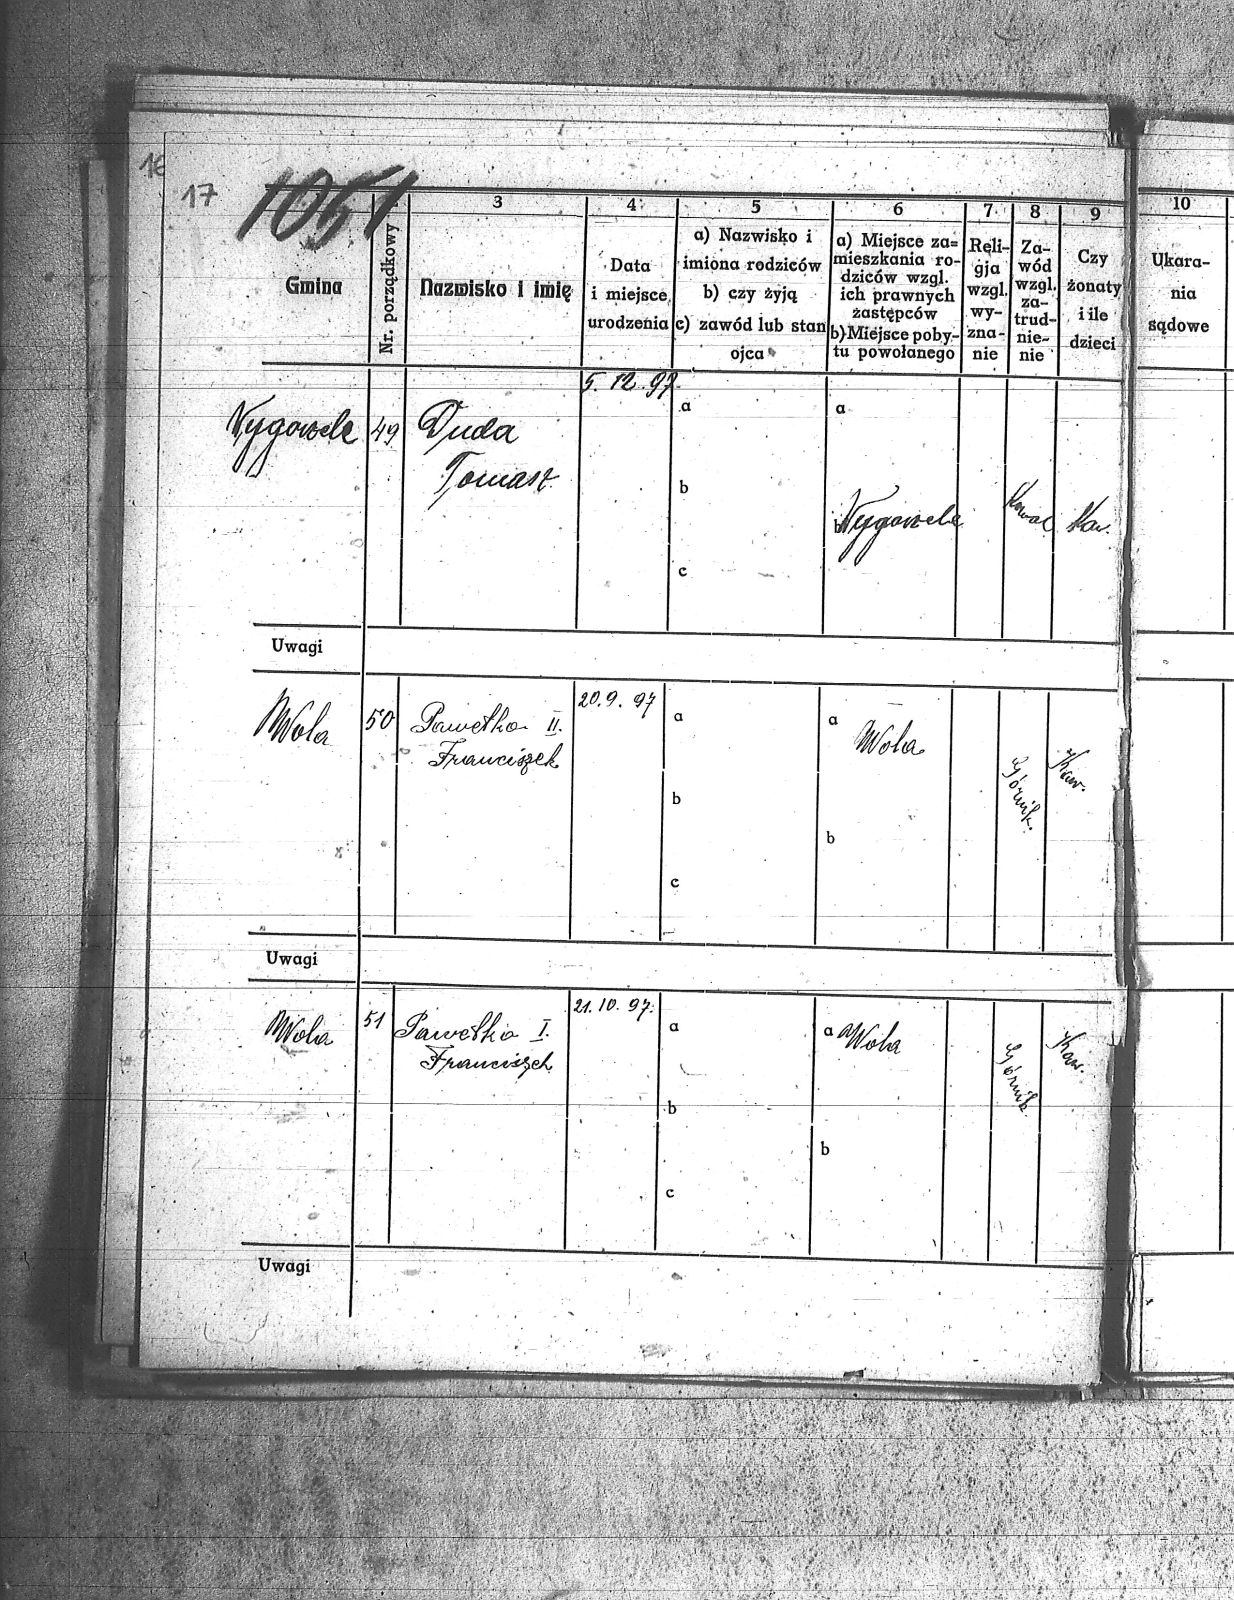 16
17
1051
3
4
5
6
7
8
9
10
Gmina
Nr. porządkowy
Nazwisko i imię
Data
i miejsce
urodzenia
a) Nazwisko i
imiona rodziców
b) czy żyją
c) zawód lub stan
ojca
a) Miejsce za=
mieszkania ro-
dziców wzgl.
ich prawnych
zastępców
b) Miejsce poby-
tu powołanego
Reli-
gja
wzgl.
wy-
zna-
nie
Za-
wód
wzgl.
za-
trud-
nie-
nie
Czy
żonaty
i ile
dzieci
Ukara-
nia
sądowe
49
Duda
Tomasz
5. 12. 97.
a
b
c
a
b
Kowal
Kaw.
Uwagi
Wola
50
Pawełka II.
Franciszek
20. 9. 97
a
b
c
a
Wola
b
Górnik.
Kaw.
Uwagi
Wola
51
Pawełka I.
Franciszek
21. 10. 97.
a
b
c
a Wola
b
Górnik
Kaw.
Uwagi